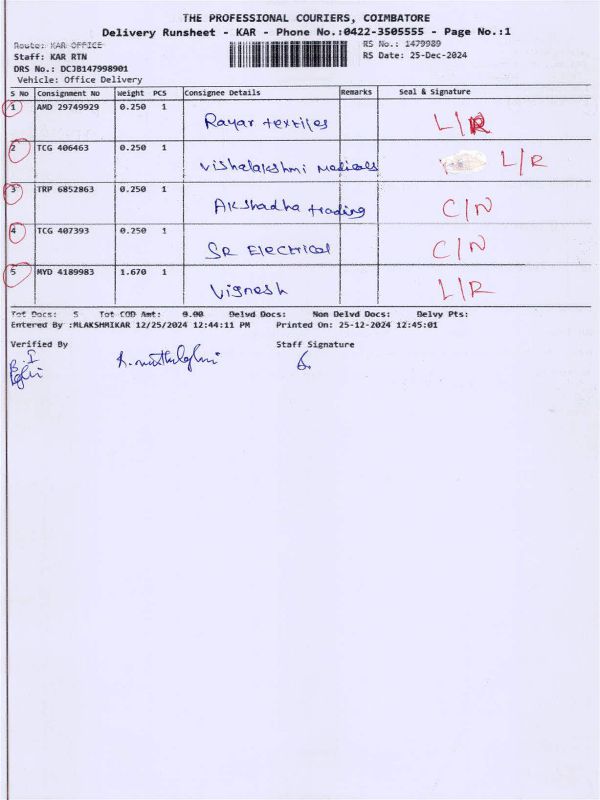 THE PROFESSIONAL COURIERS, COIMBATORE
Delivery Runsheet - KAR - Phone No.:0422-3505555 - Page No.:1
Route: KAR OFFICE
RS No.: 1479989
Staff: KAR RTN
RS Date: 25-Dec-2024
DRS No.: DCJB147998901
Vehicle: Office Delivery
S No Consignment No Weight PCS Consignee Details Remarks Seal & Signature
1 AMD 29749929 0.250 1 Rayar textiles L/R
2 TCG 406463 0.250 1 Vishalakshmi Medicals L/R
3 TRP 6852863 0.250 1 Akshadha trading C/N
4 TCG 407393 0.250 1 SR Electrical C/N
5 MYD 4189983 1.670 1 Vignesh L/R
Tot Docs: 5 Tot COD Amt: 0.00 Delvd Docs: Non Delvd Docs: Delvy Pts:
Entered By :MLAKSHMIKAR 12/25/2024 12:44:11 PM Printed On: 25-12-2024 12:45:01
Verified By Staff Signature